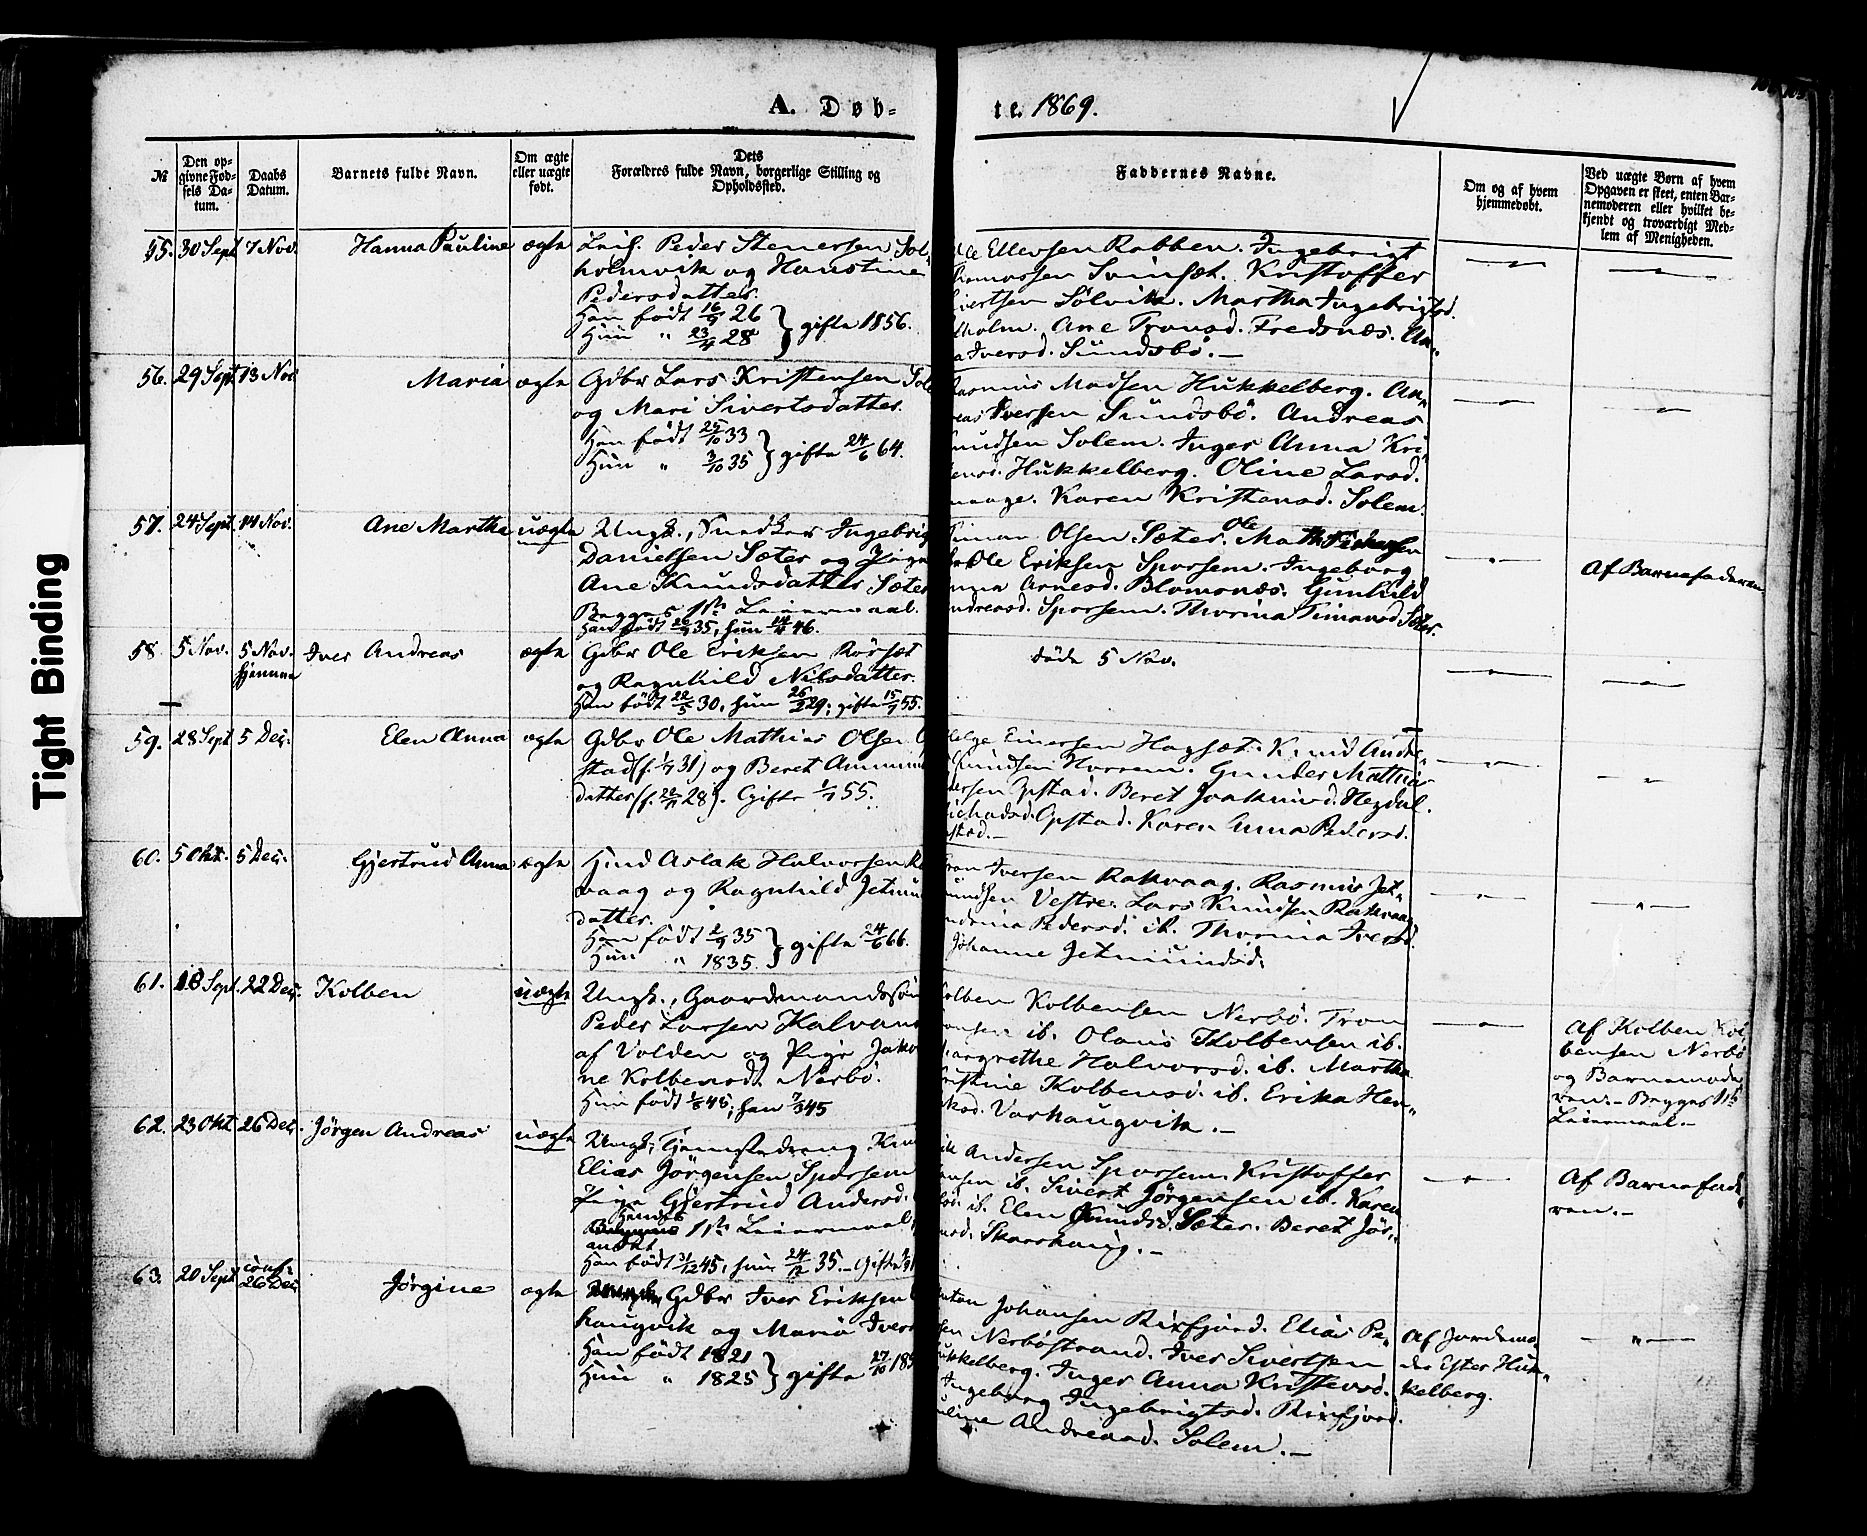 A. Døb-
te. 1869.
№
Den op-
givne Fød-
sels Da-
tum.
Daabs
Datum.
Barnets fulde Navn.
Om ægte
eller uægte
født.
Dets
Forældres fulde Navn, borgerlige Stilling og
Opholdssted.
Faddernes Navne.
Om og af hvem
hjemmedøbt.
Ved uægte Børn af hvem
Opgaven er skeet, enten Bar-
nemoderen eller hvilket be-
kjendt og troværdigt Med-
lem af Menigheden.
Tight Binding
55. 30 Sept 7 Nov. Hanna Pauline ægte
Leil. Peder Stenersen Sol-
holmvik og Hanstine
Pedersdatter.
Han født 16/9 26
Hun " 23/4 28 } gifte 1856.
Ellevsen Robben. Ingebrigt
Svinsæt. Kristoffer
Sivertsen Sølvik. Martha Ingebrigtsd.
holm. Ane Tronsd. Frednæs. An-
Iversd. Sundsbö.—
56. 29 Sept 13 Nov Maria ægte
Gdbr Lars Kristensen Sole
og Mari Sivertsdatter.
Han født 25/10 33
Hun " 3/10 35 } gifte 24/6 64.
Rasmus Madsen Hukkelberg. An-
Iversen Sundsbö. Andreas
Knudsen Solem. Inger Anna Kri-
Hukkelberg. Oline Larsd.
Karen Kristensd. Solem.
57. 24 Sept. 14 Nov. Ane Martha uægte
Ungk., Snedker Ingebrig
Danielsen Sæter og Pige
Ane Knudsdatter Sæter
Begges 1ste Leiermaal.
Han født 26/9 35, hun 46.
Timan Olsen Sæter. Ole
Ole Eriksen Sporsem. Ingeborg
Arnesd. Blomsnæs. Gunhild
Andreasd. Sporsem. Thorina Timansd Sæter.
Af Barnefaderen
58. 5 Nov. 5 Nov.
hjemme
Iver Andreas ægte
Gdbr Ole Eriksen Rörset
og Ragnhild Nilsdatter.
Han født 22/5 30, hun 26/2 29; gifte 15/7 55.
døde 5 Nov.
59. 28 Sept 5 Dec. Elen Anna ægte
Gdbr Ole Mathias Olsen
stad (f. 1/7 31) og Beret
datter (f. 28). Gifte 1/7 55.
Helge Einersen Hagsæt. Knud Andr.
Knudsen Horrem. Gunder Mathias
Opstad. Beret Joakimsd. Hegdal.
Opstad. Karen Anna Pedersd.
60. 5 Okt. 5 Dec. Gjertrud Anna ægte
Hmd Aslak Halvorsen R
vaag og Ragnhild Jetmun
datter.
Han født 2/9 35
Hun " 1835. } gifte 24/6 66.
Tron Iversen Rakvaag. Rasmus Jet-
mundsen Vestre. Lars Knudsen Rakvaag
Pedersd. ib. Thorina Iversd.
Johanne Jetmundsd.
61. 18 Sept. 22 Dec. Kolben uægte
Ungk., Gaardmandssön
Peder Larsen Halvan
af Volden og Pige Jako
ne Kolbensd. Nerbö.
Hun født 1/8 45; han 7/3 45
Kolben Kolbensen Nerbö. Tron
ib. Olaus Kolbensen ib.
Margrethe Halvorsd. ib. Martha
Kristine Kolbensd. ib. Erika Hen-
Varhaugvik.—
Af Kolben Kol-
bensen Nerbö
og Barnemode
ren.— Begges 1ste
Leiermaal.—
62. 23 Okt 26 Dec. Jørgen Andreas uægte
Ungk., Tjenestedreng Knu
Elias Jörgensen Sporsem
Pige Gjertrud Andersd.
Hendes
1ste Leiermaal,
Han født 31/12 45, hun 24/12 35.— Gifte
Andersen Sporsem. Kristoffer
ib. Sivert Jörgensen ib. Karen
ib. Elen Knudsd. Sæter. Beret Jör-
Skarshaug.—
Af Barnefade-
ren.—
63. 20 Sept conf.
26 Dec
Jørgine ægte
Gdbr Iver Eriksen
haugvik og Maria Ivers
Han født 1821
Hun " 1825 } gifte 27/10
Anton Johansen Rixfjord. Elias Pe-
Nerböstrand. Iver Sivertsen
Hukkelberg. Inger Anna Kristensd.
Ingeborg Ingebrigtsd. Rixfjord.
Andreasd. Solem.—
Af Jordemo
der Ester Huk-
kelberg.